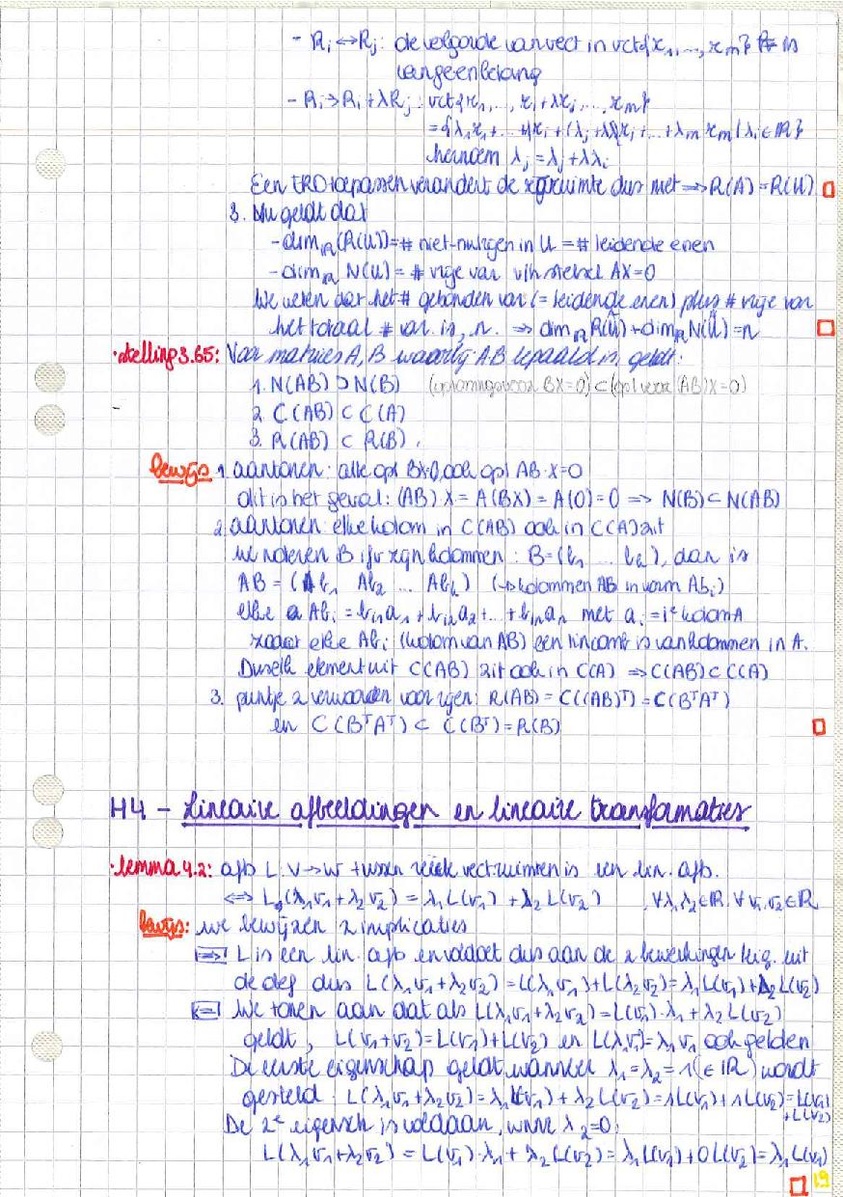 - Rᵢ ↔ Rⱼ: de volgorde van vect in vct{x₁, ..., xₘ} is
van geen belang
- Rᵢ → Rᵢ + λRⱼ: vct{x₁, ..., xᵢ + λxⱼ, ..., xₘ}
= {λ₁x₁ + ... xᵢ + (λⱼ + λλᵢ)xⱼ + ... + λₘxₘ | λᵢ ∈ ℝ}
hernoem λⱼ = λⱼ + λλᵢ
Een ERO toepassen verandert de rijruimte dus niet ⟹ R(A) = R(U) □
3. Nu geldt dat
- dim_ℝ(R(U)) = # niet-nulrijen in U = # leidende enen
- dim_ℝ N(U) = # vrije var v/h stelsel AX=0
We weten dat het # gebonden var (= leidende enen) plus # vrije var
het totaal # var. is, n. ⟹ dim_ℝ R(U) + dim_ℝ N(U) = n □
• stelling 3.65: Voor matrices A, B waarbij AB bepaald is, geldt:
1. N(AB) ⊃ N(B) (oplossingen voor BX=0) ⊂ (opl voor (AB)X=0)
2. C(AB) ⊂ C(A)
3. R(AB) ⊂ R(B).
bewijs 1. aantonen: alle opl BX=0, ook opl AB·X=0
dit is het geval: (AB)X = A(BX) = A(0) = 0 ⟹ N(B) ⊂ N(AB)
2. aantonen: elke kolom in C(AB) ook in C(A) zit
we noteren B ifv zijn kolommen: B = (b₁ ... bₖ), dan is
AB = (Ab₁ Ab₂ ... Abₖ) (↳ kolommen AB in vorm Abᵢ)
elke Abᵢ = bᵢ₁a₁ + bᵢ₂a₂ + ... + bᵢₙaₙ met aᵢ = iᵉ kolom A
zodat elke Abᵢ (kolom van AB) een lin comb is van kolommen in A.
Dus elk element uit C(AB) zit ook in C(A) ⟹ C(AB) ⊂ C(A)
3. puntje 2 verwoorden voor rijen: R(AB) = C((AB)ᵀ) = C(BᵀAᵀ)
en C(BᵀAᵀ) ⊂ C(Bᵀ) = R(B) □
H4 - Lineaire afbeeldingen en lineaire transformaties
• lemma 4.2: afb L: V → W tussen reële vect ruimten is een lin. afb.
⟺ L(λ₁v₁ + λ₂v₂) = λ₁L(v₁) + λ₂L(v₂) , ∀λ₁,λ₂ ∈ ℝ, ∀v₁,v₂ ∈ ℝ
bewijs: we bewijzen 2 implicaties
⟹ L is een lin. afb en voldoet dus aan de 2 bewerkingen uit
de def dus L(λ₁v₁ + λ₂v₂) = L(λ₁v₁) + L(λ₂v₂) = λ₁L(v₁) + λ₂L(v₂)
⟸ We tonen aan dat als L(λ₁v₁ + λ₂v₂) = L(v₁)·λ₁ + λ₂L(v₂)
geldt, L(v₁+v₂) = L(v₁) + L(v₂) en L(λ₁v₁) = λ₁v₁ ook gelden
De eerste eigenschap geldt wanneer λ₁ = λ₂ = 1 (∈ ℝ) wordt
gesteld: L(λ₁v₁ + λ₂v₂) = λ₁L(v₁) + λ₂L(v₂) = 1L(v₁) + 1L(v₂) = L(v₁)
+ L(v₂)
De 2ᵉ eigensch is voldaan, λ₂ = 0:
L(λ₁v₁ + λ₂v₂) = L(v₁)·λ₁ + λ₂L(v₂) = λ₁L(v₁) + 0L(v₂) = λ₁L(v₁)
□ 19